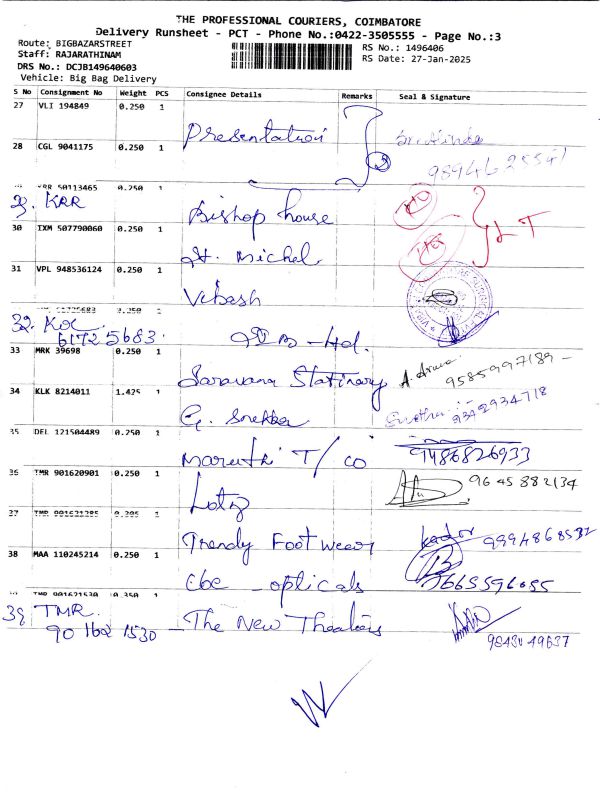 THE PROFESSIONAL COURIERS, COIMBATORE
Delivery Runsheet - PCT - Phone No.:0422-3505555 - Page No.:3
Route: BIGBAZARSTREET
Staff: RAJARATHINAM
DRS No.: DCJB149640603
Vehicle: Big Bag Delivery
RS No.: 1496406
RS Date: 27-Jan-2025
S No Consignment No Weight PCS Consignee Details Remarks Seal & Signature
27 VLI 194849 0.250 1
Presentation
28 CGL 9041175 0.250 1
9894625541
KRR 50113465 0.250 1
KRR Bishop house
30 IXM 507790060 0.250 1
St. Michel
LT
31 VPL 948536124 0.250 1
Vibash
32. KOL
61725683
33 MRK 39698 0.250 1
Saravana Stationary
9585997189
34 KLK 8214011 1.425 1
G. Snekha
9342934718
35 DEL 121504489 0.250 1
Maruthi T/co
9486826933
36 TMR 901620901 0.250 1
Lotz
9645882134
TMR 901621285 1
Trendy Footwear
Kador 9994868532
38 MAA 110245214 0.250 1
cbe opticals
TMR 901621530 0.350 1
39 TMR
901621530 - The New Theaters
9843049637